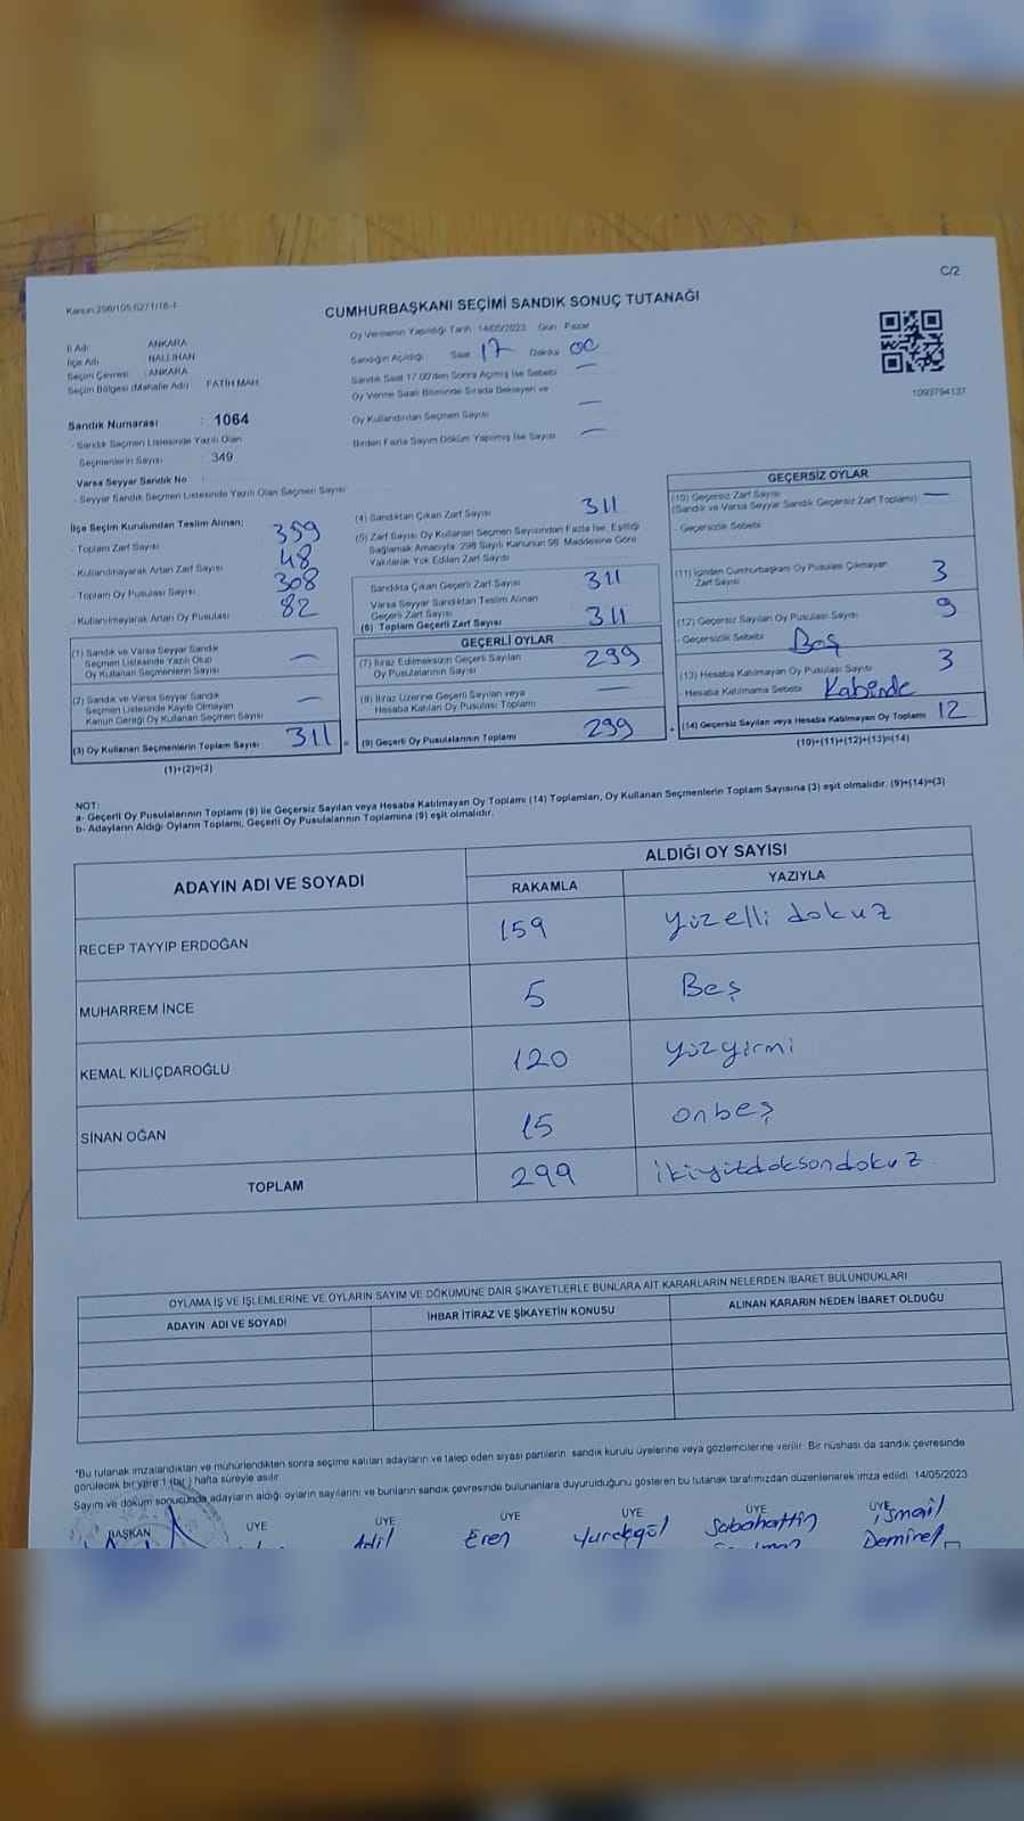 C/2
CUMHURBAŞKANI SEÇİMİ SANDIK SONUÇ TUTANAĞI
Oy Vermenin Yapıldığı Tarih 14/05/2023 Gün Pazar
İl Adı ANKARA
İlçe Adı NALLIHAN
Seçim Çevresi ANKARA
Seçim Bölgesi (Mahalle Adı) FATİH MAH
Sandığın Açıldığı Saat 17 Dakika 00
Sandık Saat 17.00'den Sonra Açılmış İse Sebebi —
Oy Verme Saati Bitiminde Sırada Bekleyen ve
Oy Kullandırılan Seçmen Sayısı —
Birden Fazla Sayım Döküm Yapılmış İse Sayısı —
1093794137
Sandık Numarası : 1064
- Sandık Seçmen Listesinde Yazılı Olan
Seçmenlerin Sayısı : 349
Varsa Seyyar Sandık No
- Seyyar Sandık Seçmen Listesinde Yazılı Olan Seçmen Sayısı
İlçe Seçim Kurulundan Teslim Alınan;
- Toplam Zarf Sayısı 359
- Kullanılmayarak Artan Zarf Sayısı 48
- Toplam Oy Pusulası Sayısı 308
- Kullanılmayarak Artan Oy Pusulası 82
(1) Sandık ve Varsa Seyyar Sandık
Seçmen Listesinde Yazılı Olup
Oy Kullanan Seçmenlerin Sayısı —
(2) Sandık ve Varsa Seyyar Sandık
Seçmen Listesinde Kayıtlı Olmayan
Kanun Gereği Oy Kullanan Seçmen Sayısı —
(3) Oy Kullanan Seçmenlerin Toplam Sayısı 311
(1)+(2)=(3)
(4) Sandıktan Çıkan Zarf Sayısı 311
(5) Zarf Sayısı Oy Kullanan Seçmen Sayısından Fazla İse, Eşitliği
Sağlamak Amacıyla 298 Sayılı Kanunun 98. Maddesine Göre
Yakılarak Yok Edilen Zarf Sayısı
Sandıkta Çıkan Geçerli Zarf Sayısı 311
Varsa Seyyar Sandıktan Teslim Alınan
Geçerli Zarf Sayısı
(6) Toplam Geçerli Zarf Sayısı 311
GEÇERLİ OYLAR
(7) İtiraz Edilmeksizin Geçerli Sayılan
Oy Pusulalarının Sayısı 299
(8) İtiraz Üzerine Geçerli Sayılan veya
Hesaba Katılan Oy Pusulası Toplamı —
(9) Geçerli Oy Pusulalarının Toplamı 299
GEÇERSİZ OYLAR
(10) Geçersiz Zarf Sayısı
(Sandık ve Varsa Seyyar Sandık Geçersiz Zarf Toplamı) —
- Geçersizlik Sebebi
(11) İçinden Cumhurbaşkanı Oy Pusulası Çıkmayan
Zarf Sayısı 3
(12) Geçersiz Sayılan Oy Pusulası Sayısı 9
- Geçersizlik Sebebi Boş
(13) Hesaba Katılmayan Oy Pusulası Sayısı 3
Hesaba Katılmama Sebebi Kabinde
(14) Geçersiz Sayılan veya Hesaba Katılmayan Oy Toplamı 12
(10)+(11)+(12)+(13)=(14)
NOT:
a- Geçerli Oy Pusulalarının Toplamı (9) ile Geçersiz Sayılan veya Hesaba Katılmayan Oy Toplamı (14) Toplamları, Oy Kullanan Seçmenlerin Toplam Sayısına (3) eşit olmalıdır. (9)+(14)=(3)
b- Adayların Aldığı Oyların Toplamı, Geçerli Oy Pusulalarının Toplamına (9) eşit olmalıdır.
ADAYIN ADI VE SOYADI
ALDIĞI OY SAYISI
RAKAMLA YAZIYLA
RECEP TAYYIP ERDOĞAN 159 yüzelli dokuz
MUHARREM İNCE 5 Beş
KEMAL KILIÇDAROĞLU 120 yüzyirmi
SİNAN OĞAN 15 onbeş
TOPLAM 299 ikiyüzdoksondokuz
OYLAMA İŞ VE İŞLEMLERİNE VE OYLARIN SAYIM VE DÖKÜMÜNE DAİR ŞİKAYETLERLE BUNLARA AİT KARARLARIN NELERDEN İBARET BULUNDUKLARI
ADAYIN ADI VE SOYADI İHBAR İTİRAZ VE ŞİKAYETİN KONUSU ALINAN KARARIN NEDEN İBARET OLDUĞU
*Bu tutanak imzalandıktan ve mühürlendikten sonra seçime katılan adayların ve talep eden siyasi partilerin sandık kurulu üyelerine veya gözlemcilerine verilir. Bir nüshası da sandık çevresinde
görülecek bir yere 1 (bir) hafta süreyle asılır.
Sayım ve döküm sonucunda adayların aldığı oyların sayılarını ve bunların sandık çevresinde bulunanlara duyurulduğunu gösteren bu tutanak tarafımızdan düzenlenerek imza edildi. 14/05/2023
BAŞKAN ÜYE ÜYE ÜYE ÜYE ÜYE ÜYE
Adil Eren Yurdagül Sabahattin İsmail
Demirel